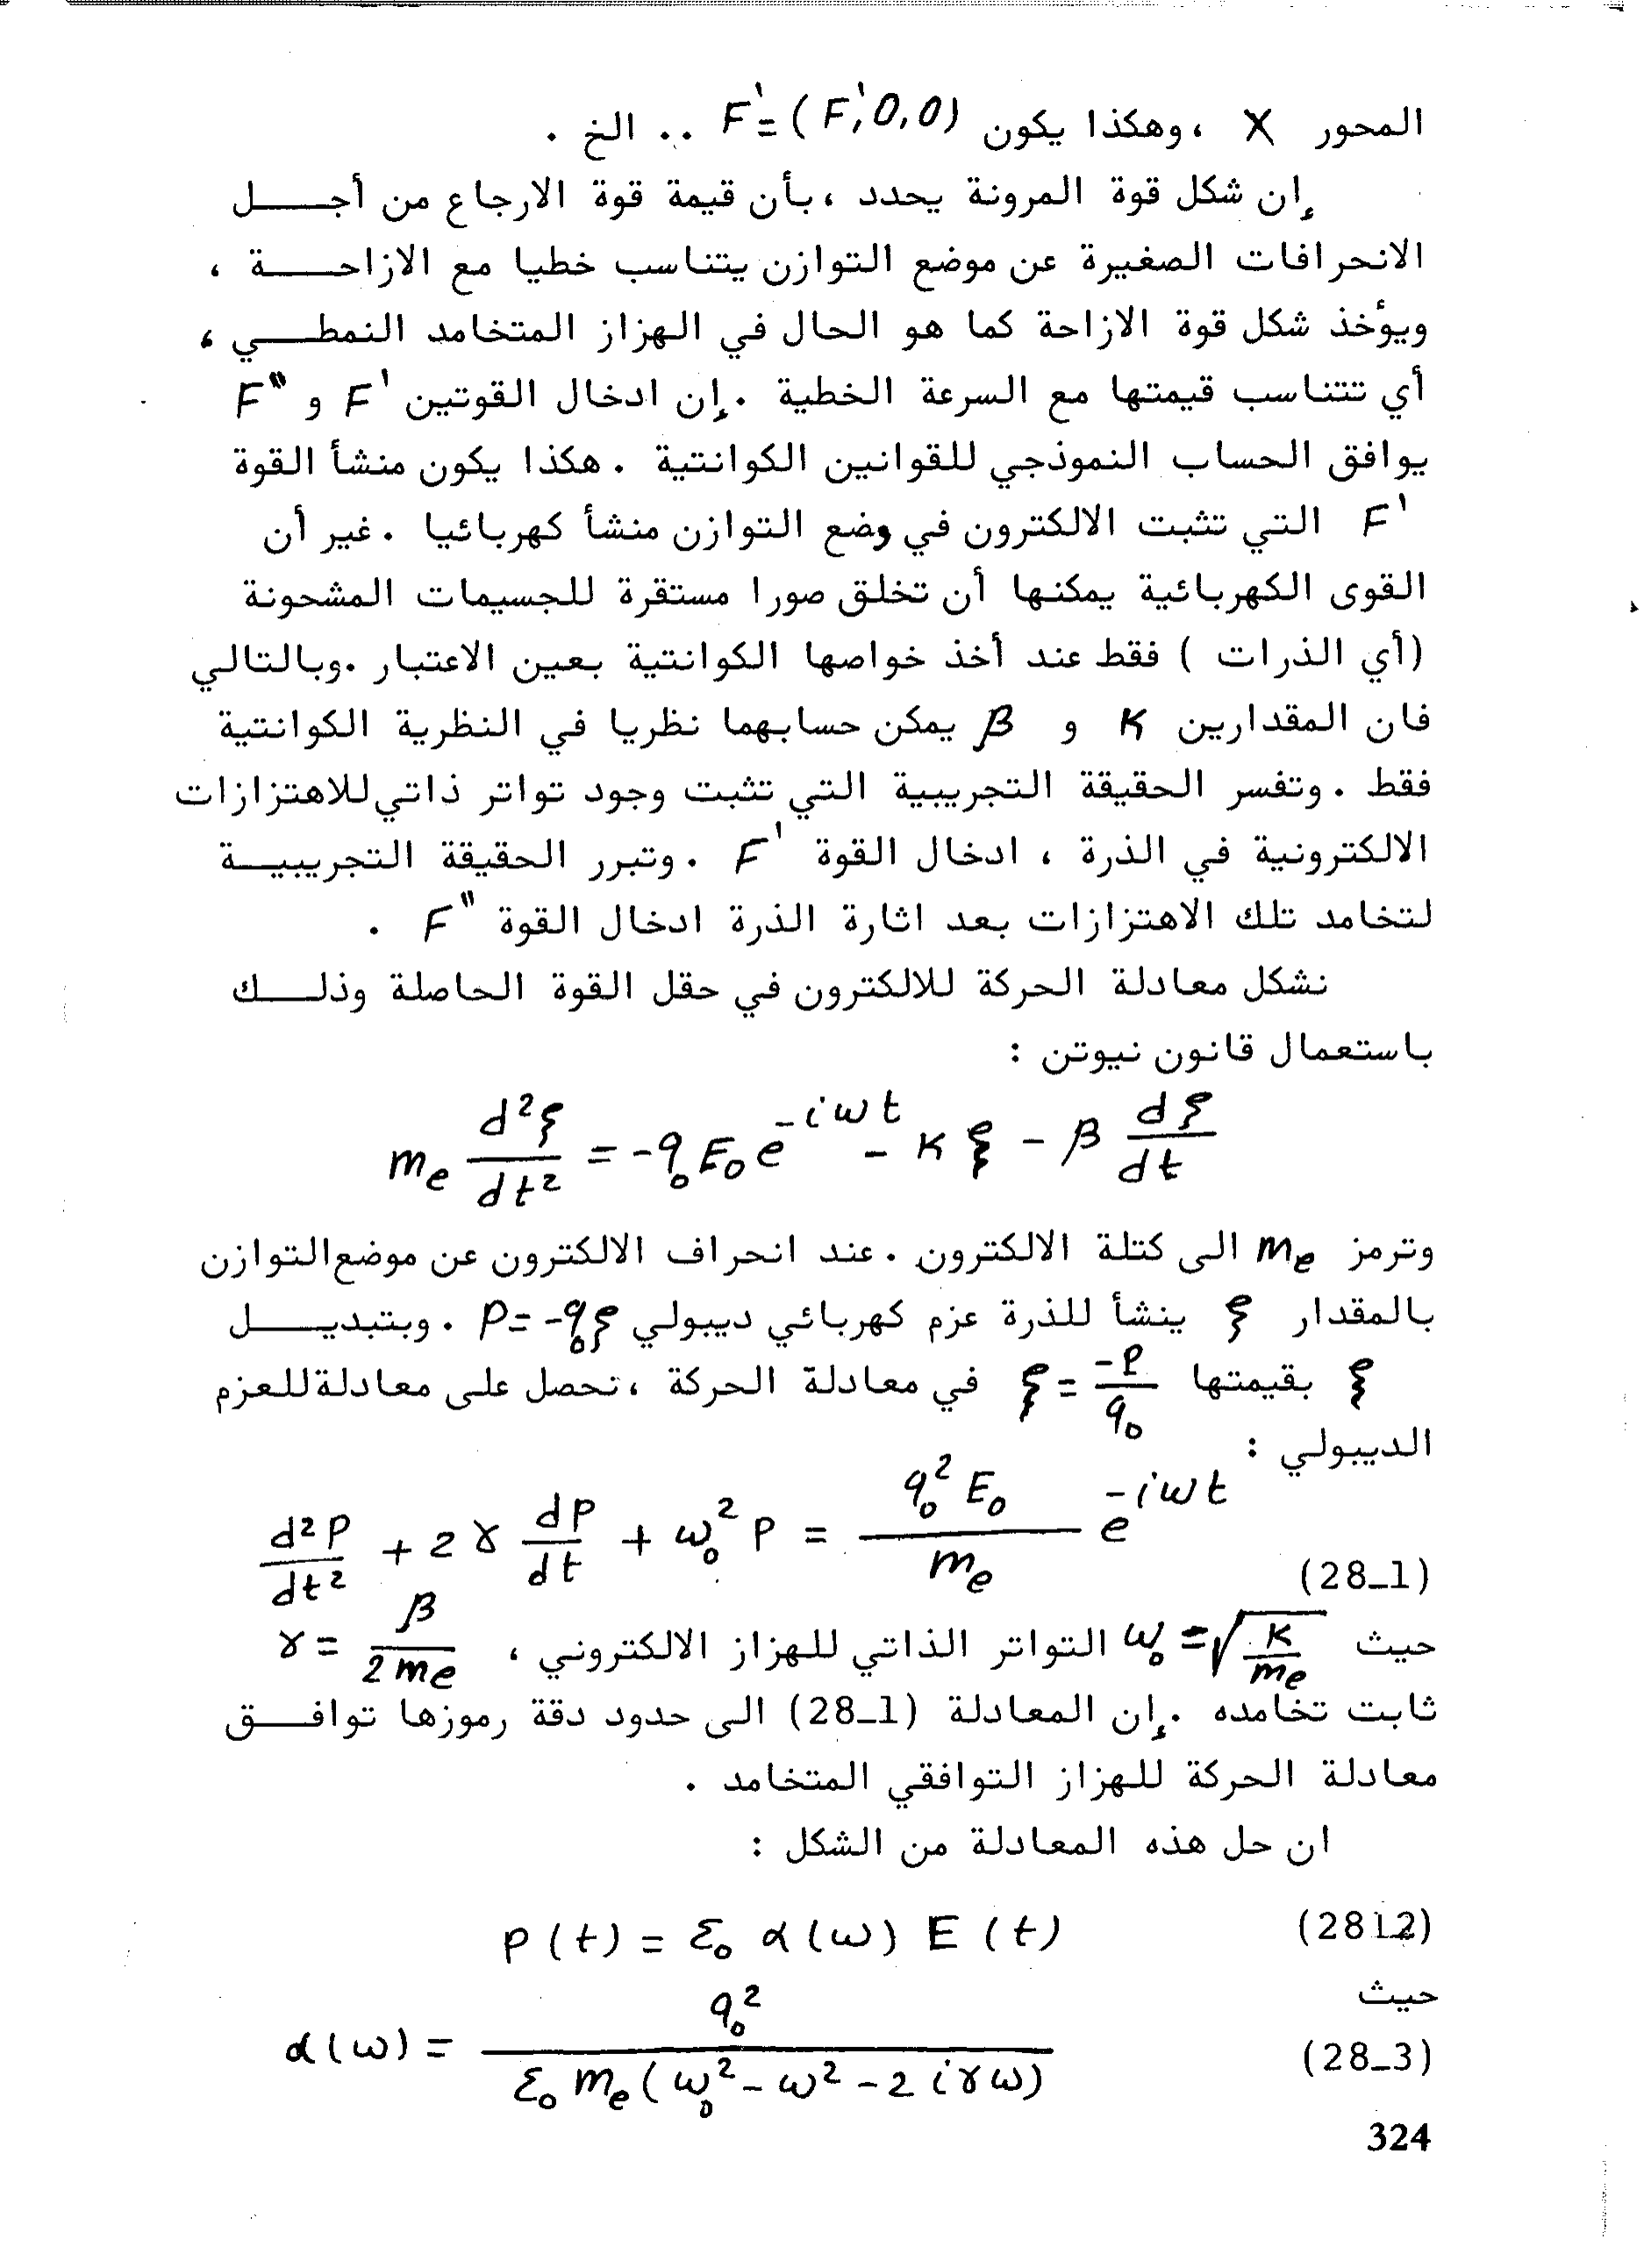 المحور X ، وهكذا يكون F'=(F',0,0) .. الخ .
إن شكل قوة المرونة يحدد ، بأن قيمة قوة الارجاع من أجل
الانحرافات الصغيرة عن موضع التوازن يتناسب خطيا مع الازاحة ،
ويؤخذ شكل قوة الازاحة كما هو الحال في الهزاز المتخامد النمطي ،
أي تتناسب قيمتها مع السرعة الخطية . إن ادخال القوتين F' و F"
يوافق الحساب النموذجي للقوانين الكوانتية . هكذا يكون منشأ القوة
F' التي تثبت الالكترون في وضع التوازن منشأ كهربائيا . غير أن
القوى الكهربائية يمكنها أن تخلق صورا مستقرة للجسيمات المشحونة
(أي الذرات ) فقط عند أخذ خواصها الكوانتية بعين الاعتبار . وبالتالي
فان المقدارين K و β يمكن حسابهما نظريا في النظرية الكوانتية
فقط . وتفسر الحقيقة التجريبية التي تثبت وجود تواتر ذاتي للاهتزازات
الالكترونية في الذرة ، ادخال القوة F' . وتبرر الحقيقة التجريبية
لتخامد تلك الاهتزازات بعد اثارة الذرة ادخال القوة F" .
نشكل معادلة الحركة للالكترون في حقل القوة الحاصلة وذلك
باستعمال قانون نيوتن :
m_e d²ξ/dt² = -q₀E₀e^{-iωt} - K ξ - β dξ/dt
وترمز m_e الى كتلة الالكترون . عند انحراف الالكترون عن موضع التوازن
بالمقدار ξ ينشأ للذرة عزم كهربائي ديبولي P=-q₀ξ . وبتبديل
ξ بقيمتها ξ = -P/q₀ في معادلة الحركة ، نحصل على معادلة للعزم
الديبولي :
d²P/dt² + 2γ dP/dt + ω₀² P = q₀² E₀/m_e e^{-iωt} (28_1)
حيث ω₀ = √(K/m_e) التواتر الذاتي للهزاز الالكتروني ، γ = β/2m_e
ثابت تخامده . إن المعادلة (28_1) الى حدود دقة رموزها توافق
معادلة الحركة للهزاز التوافقي المتخامد .
ان حل هذه المعادلة من الشكل :
P(t) = ε₀ α(ω) E(t) (28_2)
حيث
α(ω) = q₀²/ε₀ m_e(ω₀² - ω² - 2iγω) (28_3)
324